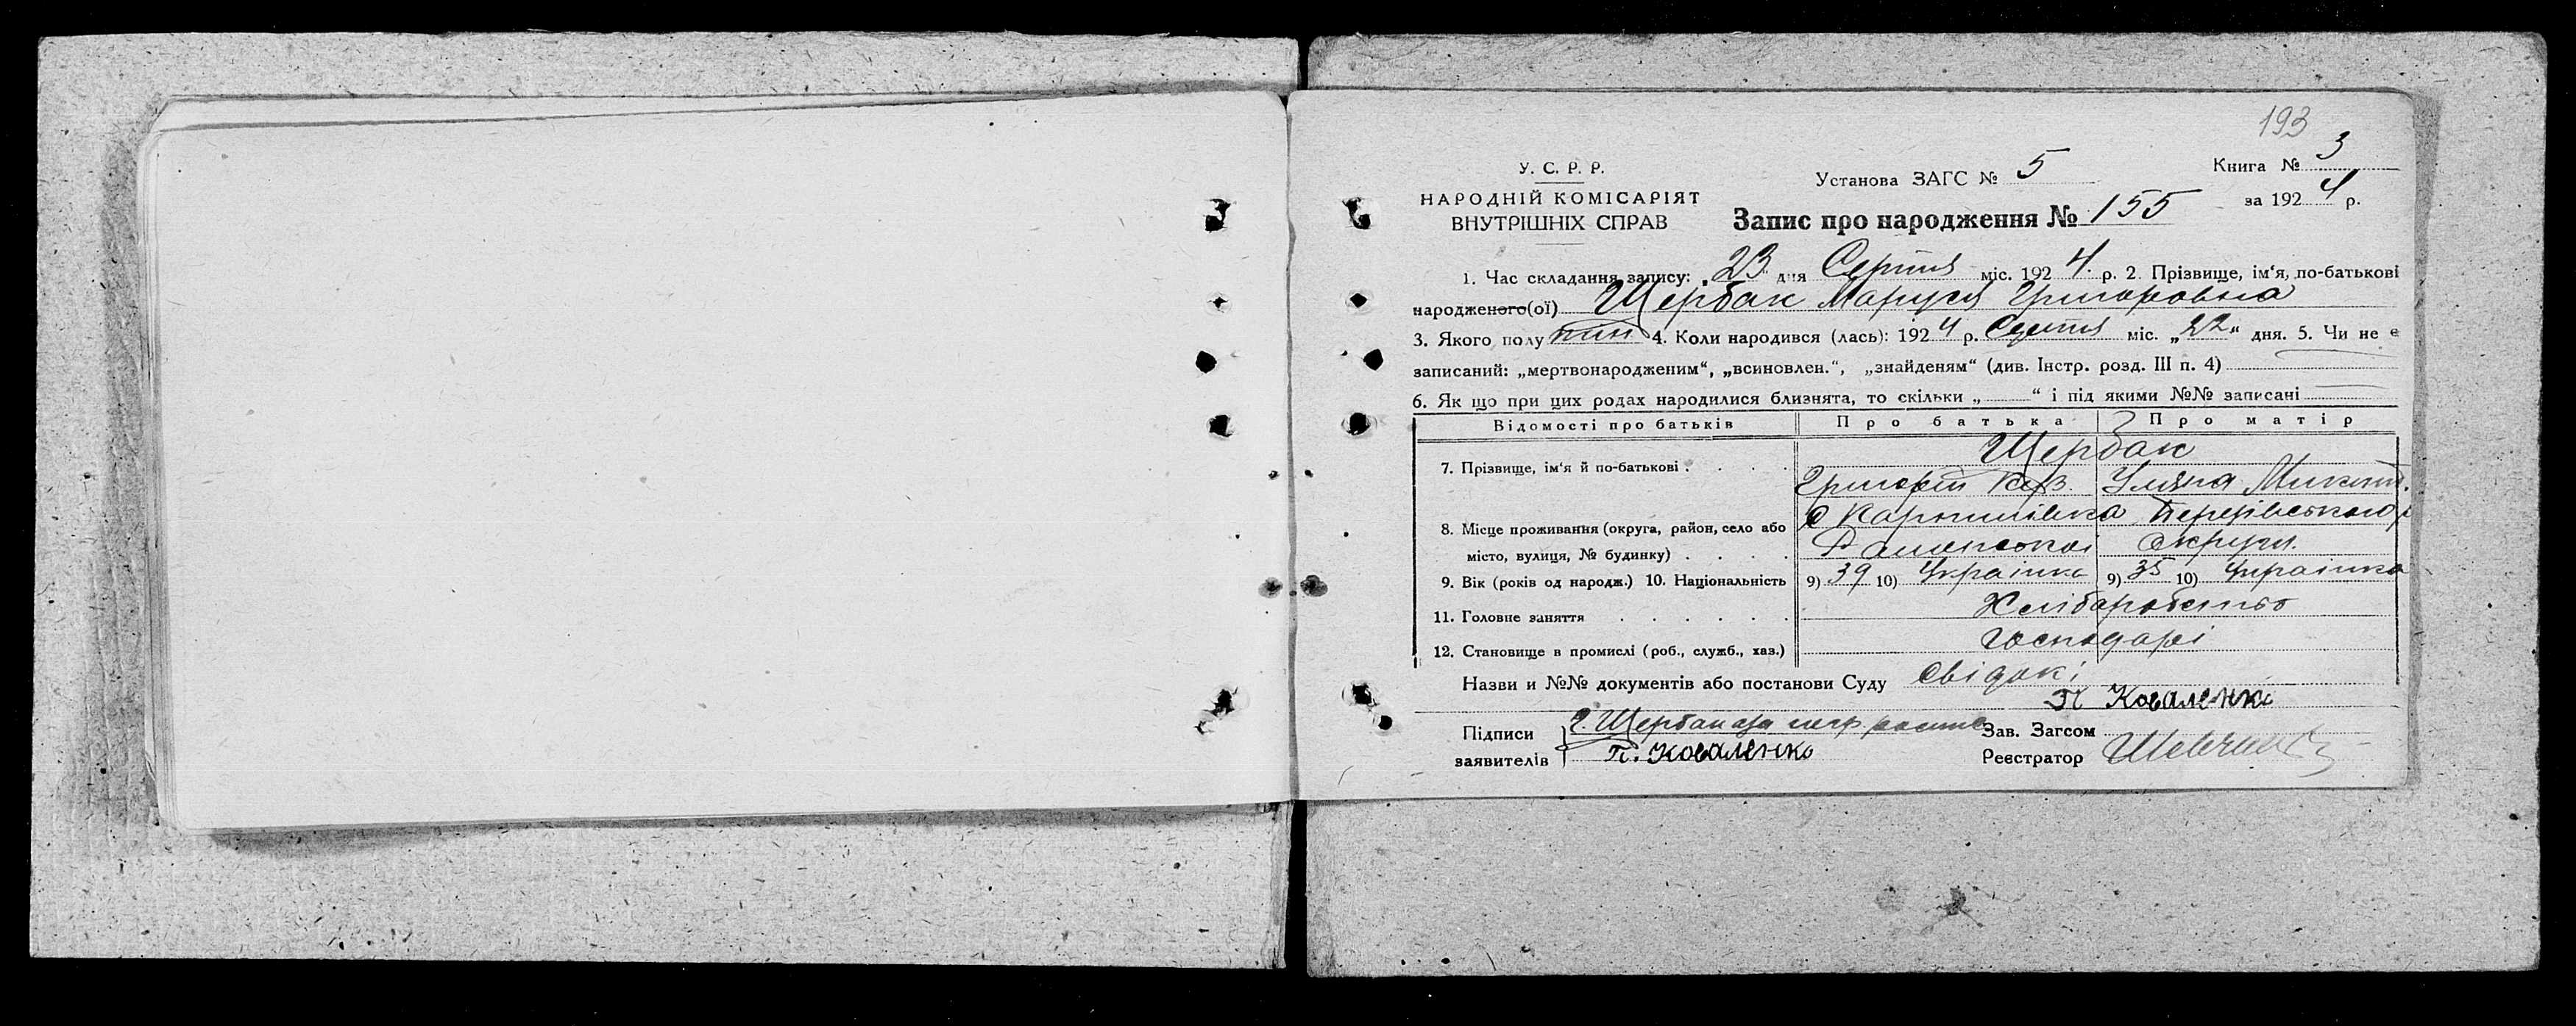 193
У. С. Р. Р.
НАРОДНІЙ КОМІСАРІЯТ
ВНУТРІШНІХ СПРАВ
Установа ЗАГС № 5
Книга № 3
за 1924 р.
Запис про народження № 155
1. Час складання запису: „23 дня Серпня міс. 1924. р. 2. Прізвище, ім'я, по-батькові
народженого(ої) Щербак Маруся Григоровна
3. Якого полу жін 4. Коли народився (лась): 1924 р. Серпня міс. „22" дня. 5. Чи не є
записаний: „мертвонародженим", „всиновлен.", „знайденям" (див. Інстр. розд. III п. 4)
6. Як що при цих родах народилися близнята, то скільки „ " і під якими №№ записані
Відомості про батьків Про батька Про матір
7. Прізвище, ім'я й по-батькові . . . . Щербак
Григорій Уляна Микит.
8. Місце проживання (округа, район, село або с
місто, вулиця, № будинку) . . . . Роменської Округи.
9. Вік (років од народж.) 10. Національність 9) 39 10) Українка 9) 35 10) Українка
11. Головне заняття . . . . . . Хліборобство
12. Становище в промислі (роб., служб., хаз.) Господарі
Назви и №№ документів або постанови Суду Свідокі
П Коваленко
Підписи Г. Щербан
заявителів П. Коваленко
Зав. Загсом
Реєстратор